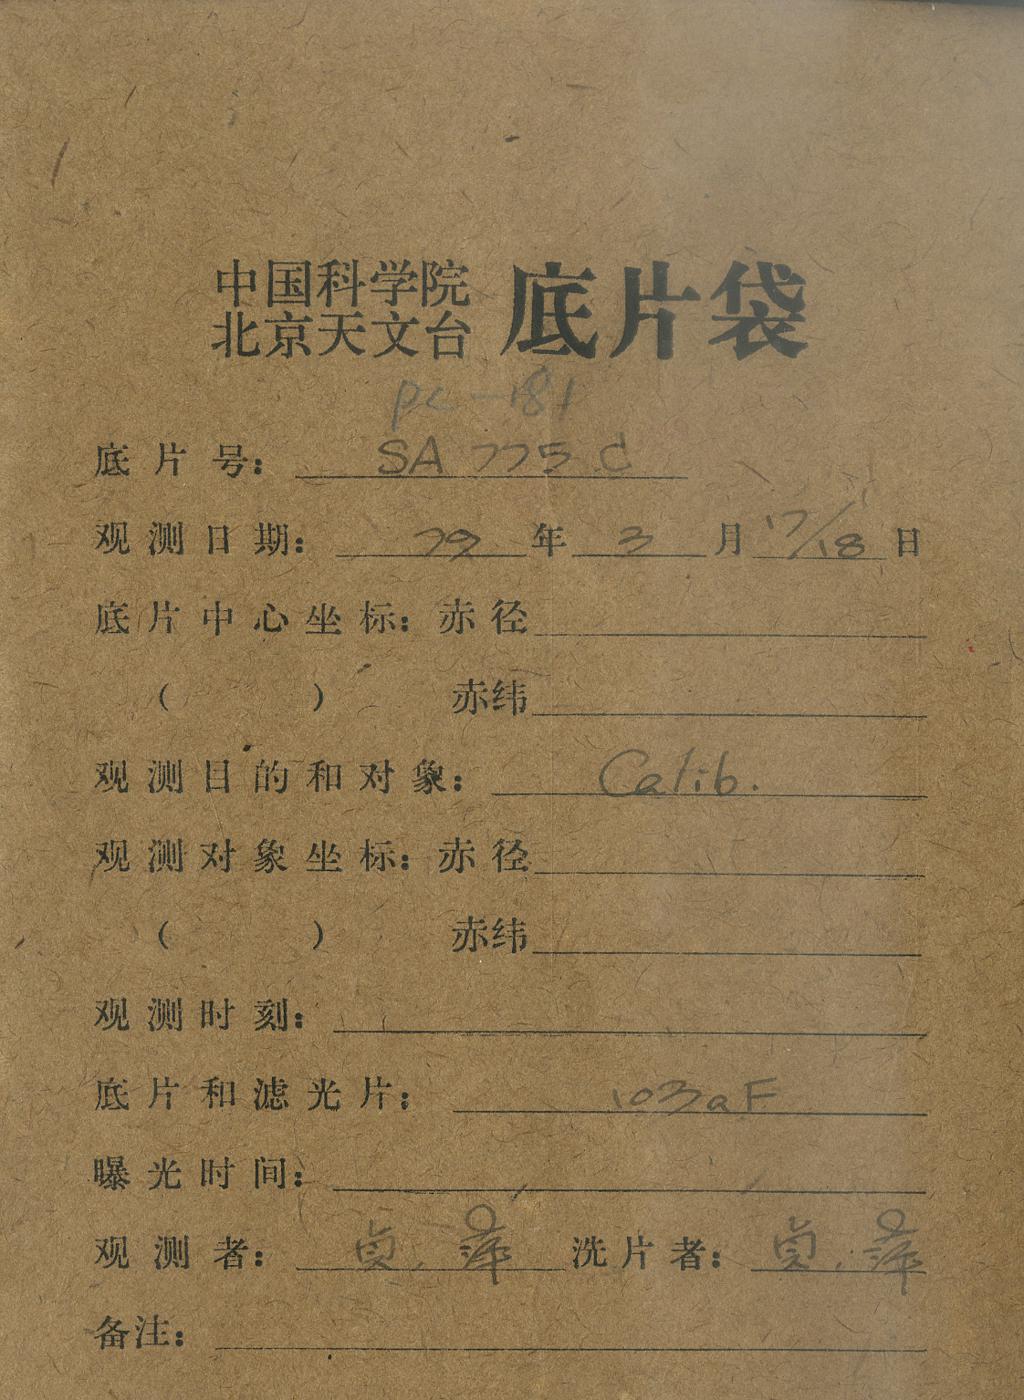 中国科学院
北京天文台 底片袋
pc-181
底片号: SA 775 C
观测日期: 79 年 3 月 17/18 日
底片中心坐标: 赤径
( ) 赤纬
观测目的和对象: Calib.
观测对象坐标: 赤径
( ) 赤纬
观测时刻:
底片和滤光片: 103aF
曝光时间:
观测者: 贞. 萍 洗片者: 贞. 萍
备注: